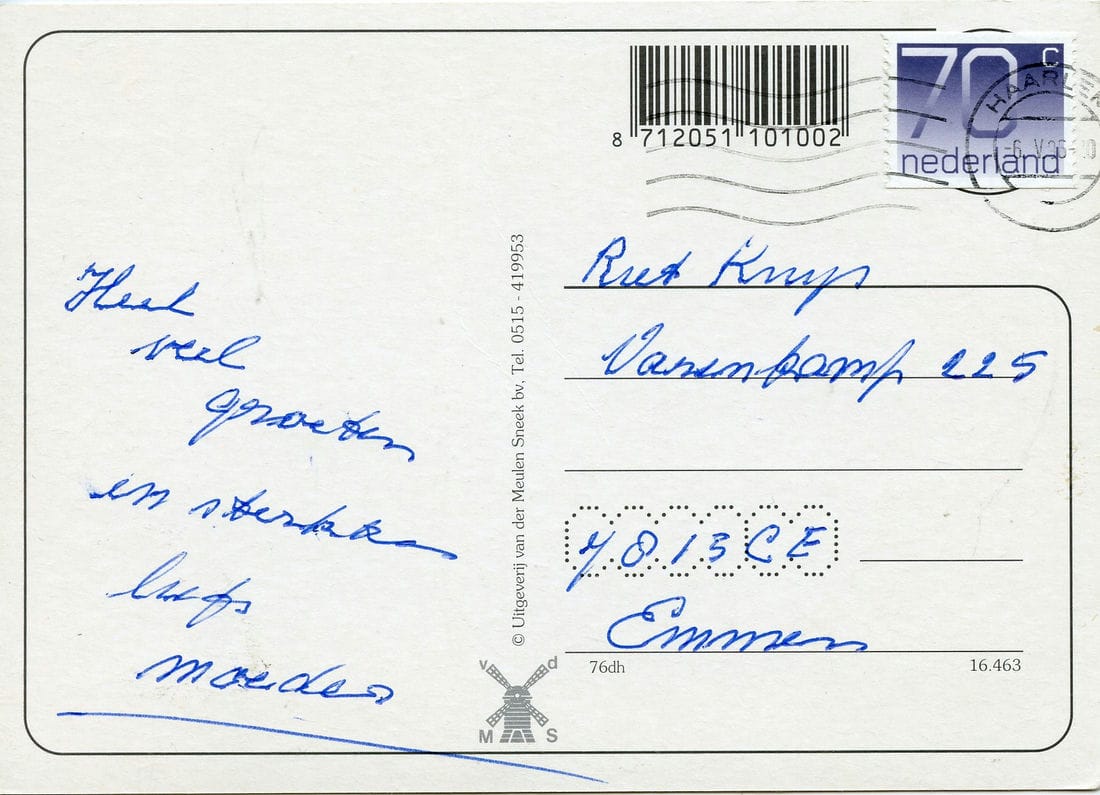 8 712051 101002
70 c
nederland
HAARLEM
-6. V.96-
Heel
veel
groeten
en sterkte
liefs
moeder
© Uitgeverij van der Meulen Sneek bv, Tel. 0515 - 419953
v d
M S
Riet Kruys
225
7813CE
Emmen
76dh
16.463